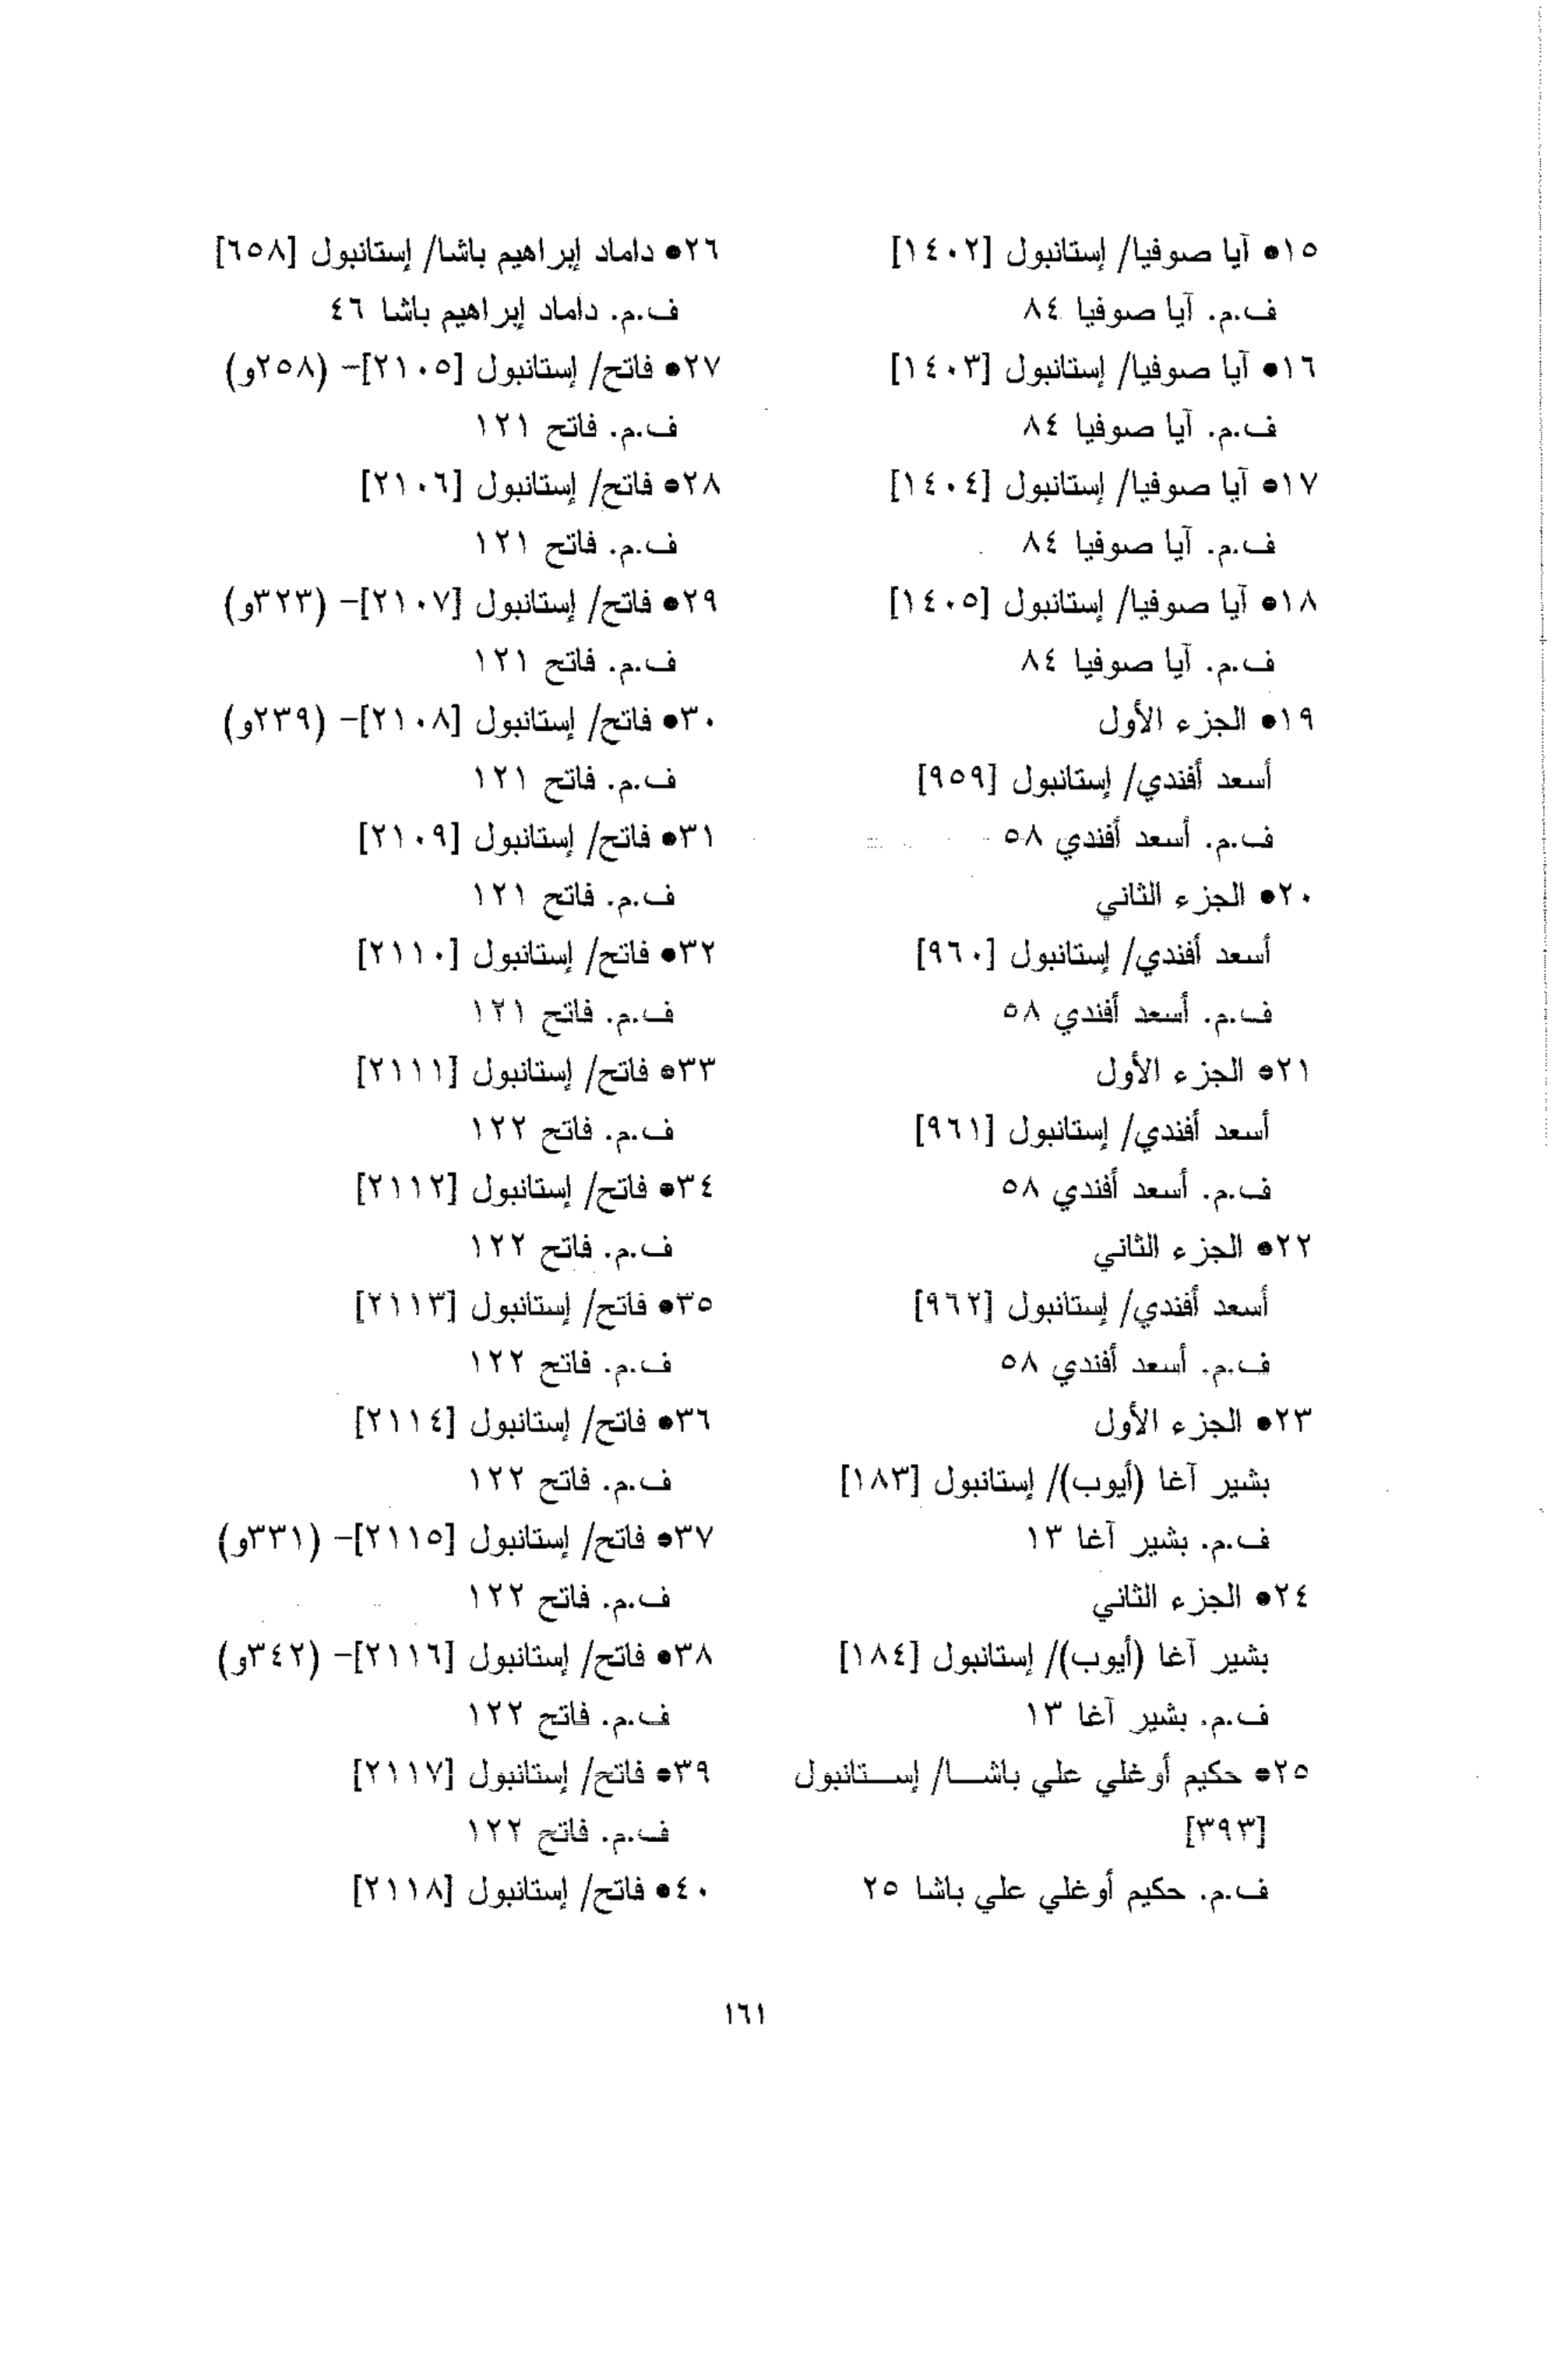 ١٥● آيا صوفيا/ إستانبول [١٤٠٢]
ف.م. آيا صوفيا ٨٤
١٦● آيا صوفيا/ إستانبول [١٤٠٣]
ف.م. آيا صوفيا ٨٤
١٧● آيا صوفيا/ إستانبول [١٤٠٤]
ف.م. آيا صوفيا ٨٤
١٨● آيا صوفيا/ إستانبول [١٤٠٥]
ف.م. آيا صوفيا ٨٤
١٩● الجزء الأول
أسعد أفندي/ إستانبول [٩٥٩]
ف.م. أسعد أفندي ٥٨
٢٠● الجزء الثاني
أسعد أفندي/ إستانبول [٩٦٠]
ف.م. أسعد أفندي ٥٨
٢١● الجزء الأول
أسعد أفندي/ إستانبول [٩٦١]
ف.م. أسعد أفندي ٥٨
٢٢● الجزء الثاني
أسعد أفندي/ إستانبول [٩٦٢]
ف.م. أسعد أفندي ٥٨
٢٣● الجزء الأول
بشير آغا (أيوب)/ إستانبول [١٨٣]
ف.م. بشير آغا ١٣
٢٤● الجزء الثاني
بشير آغا (أيوب)/ إستانبول [١٨٤]
ف.م. بشير آغا ١٣
٢٥● حكيم أوغلي علي باشـا/ إسـتانبول
[٣٩٣]
ف.م. حكيم أوغلي علي باشا ٢٥
٢٦● داماد إبراهيم باشا/ إستانبول [٦٥٨]
ف.م. داماد إبراهيم باشا ٤٦
٢٧● فاتح/ إستانبول [٢١٠٥]- (٢٥٨و)
ف.م. فاتح ١٢١
٢٨● فاتح/ إستانبول [٢١٠٦]
ف.م. فاتح ١٢١
٢٩● فاتح/ إستانبول [٢١٠٧]- (٣٢٣و)
ف.م. فاتح ١٢١
٣٠● فاتح/ إستانبول [٢١٠٨]- (٢٣٩و)
ف.م. فاتح ١٢١
٣١● فاتح/ إستانبول [٢١٠٩]
ف.م. فاتح ١٢١
٣٢● فاتح/ إستانبول [٢١١٠]
ف.م. فاتح ١٢١
٣٣● فاتح/ إستانبول [٢١١١]
ف.م. فاتح ١٢٢
٣٤● فاتح/ إستانبول [٢١١٢]
ف.م. فاتح ١٢٢
٣٥● فاتح/ إستانبول [٢١١٣]
ف.م. فاتح ١٢٢
٣٦● فاتح/ إستانبول [٢١١٤]
ف.م. فاتح ١٢٢
٣٧● فاتح/ إستانبول [٢١١٥]- (٣٣١و)
ف.م. فاتح ١٢٢
٣٨● فاتح/ إستانبول [٢١١٦]- (٣٤٢و)
ف.م. فاتح ١٢٢
٣٩● فاتح/ إستانبول [٢١١٧]
ف.م. فاتح ١٢٢
٤٠● فاتح/ إستانبول [٢١١٨]
١٦١